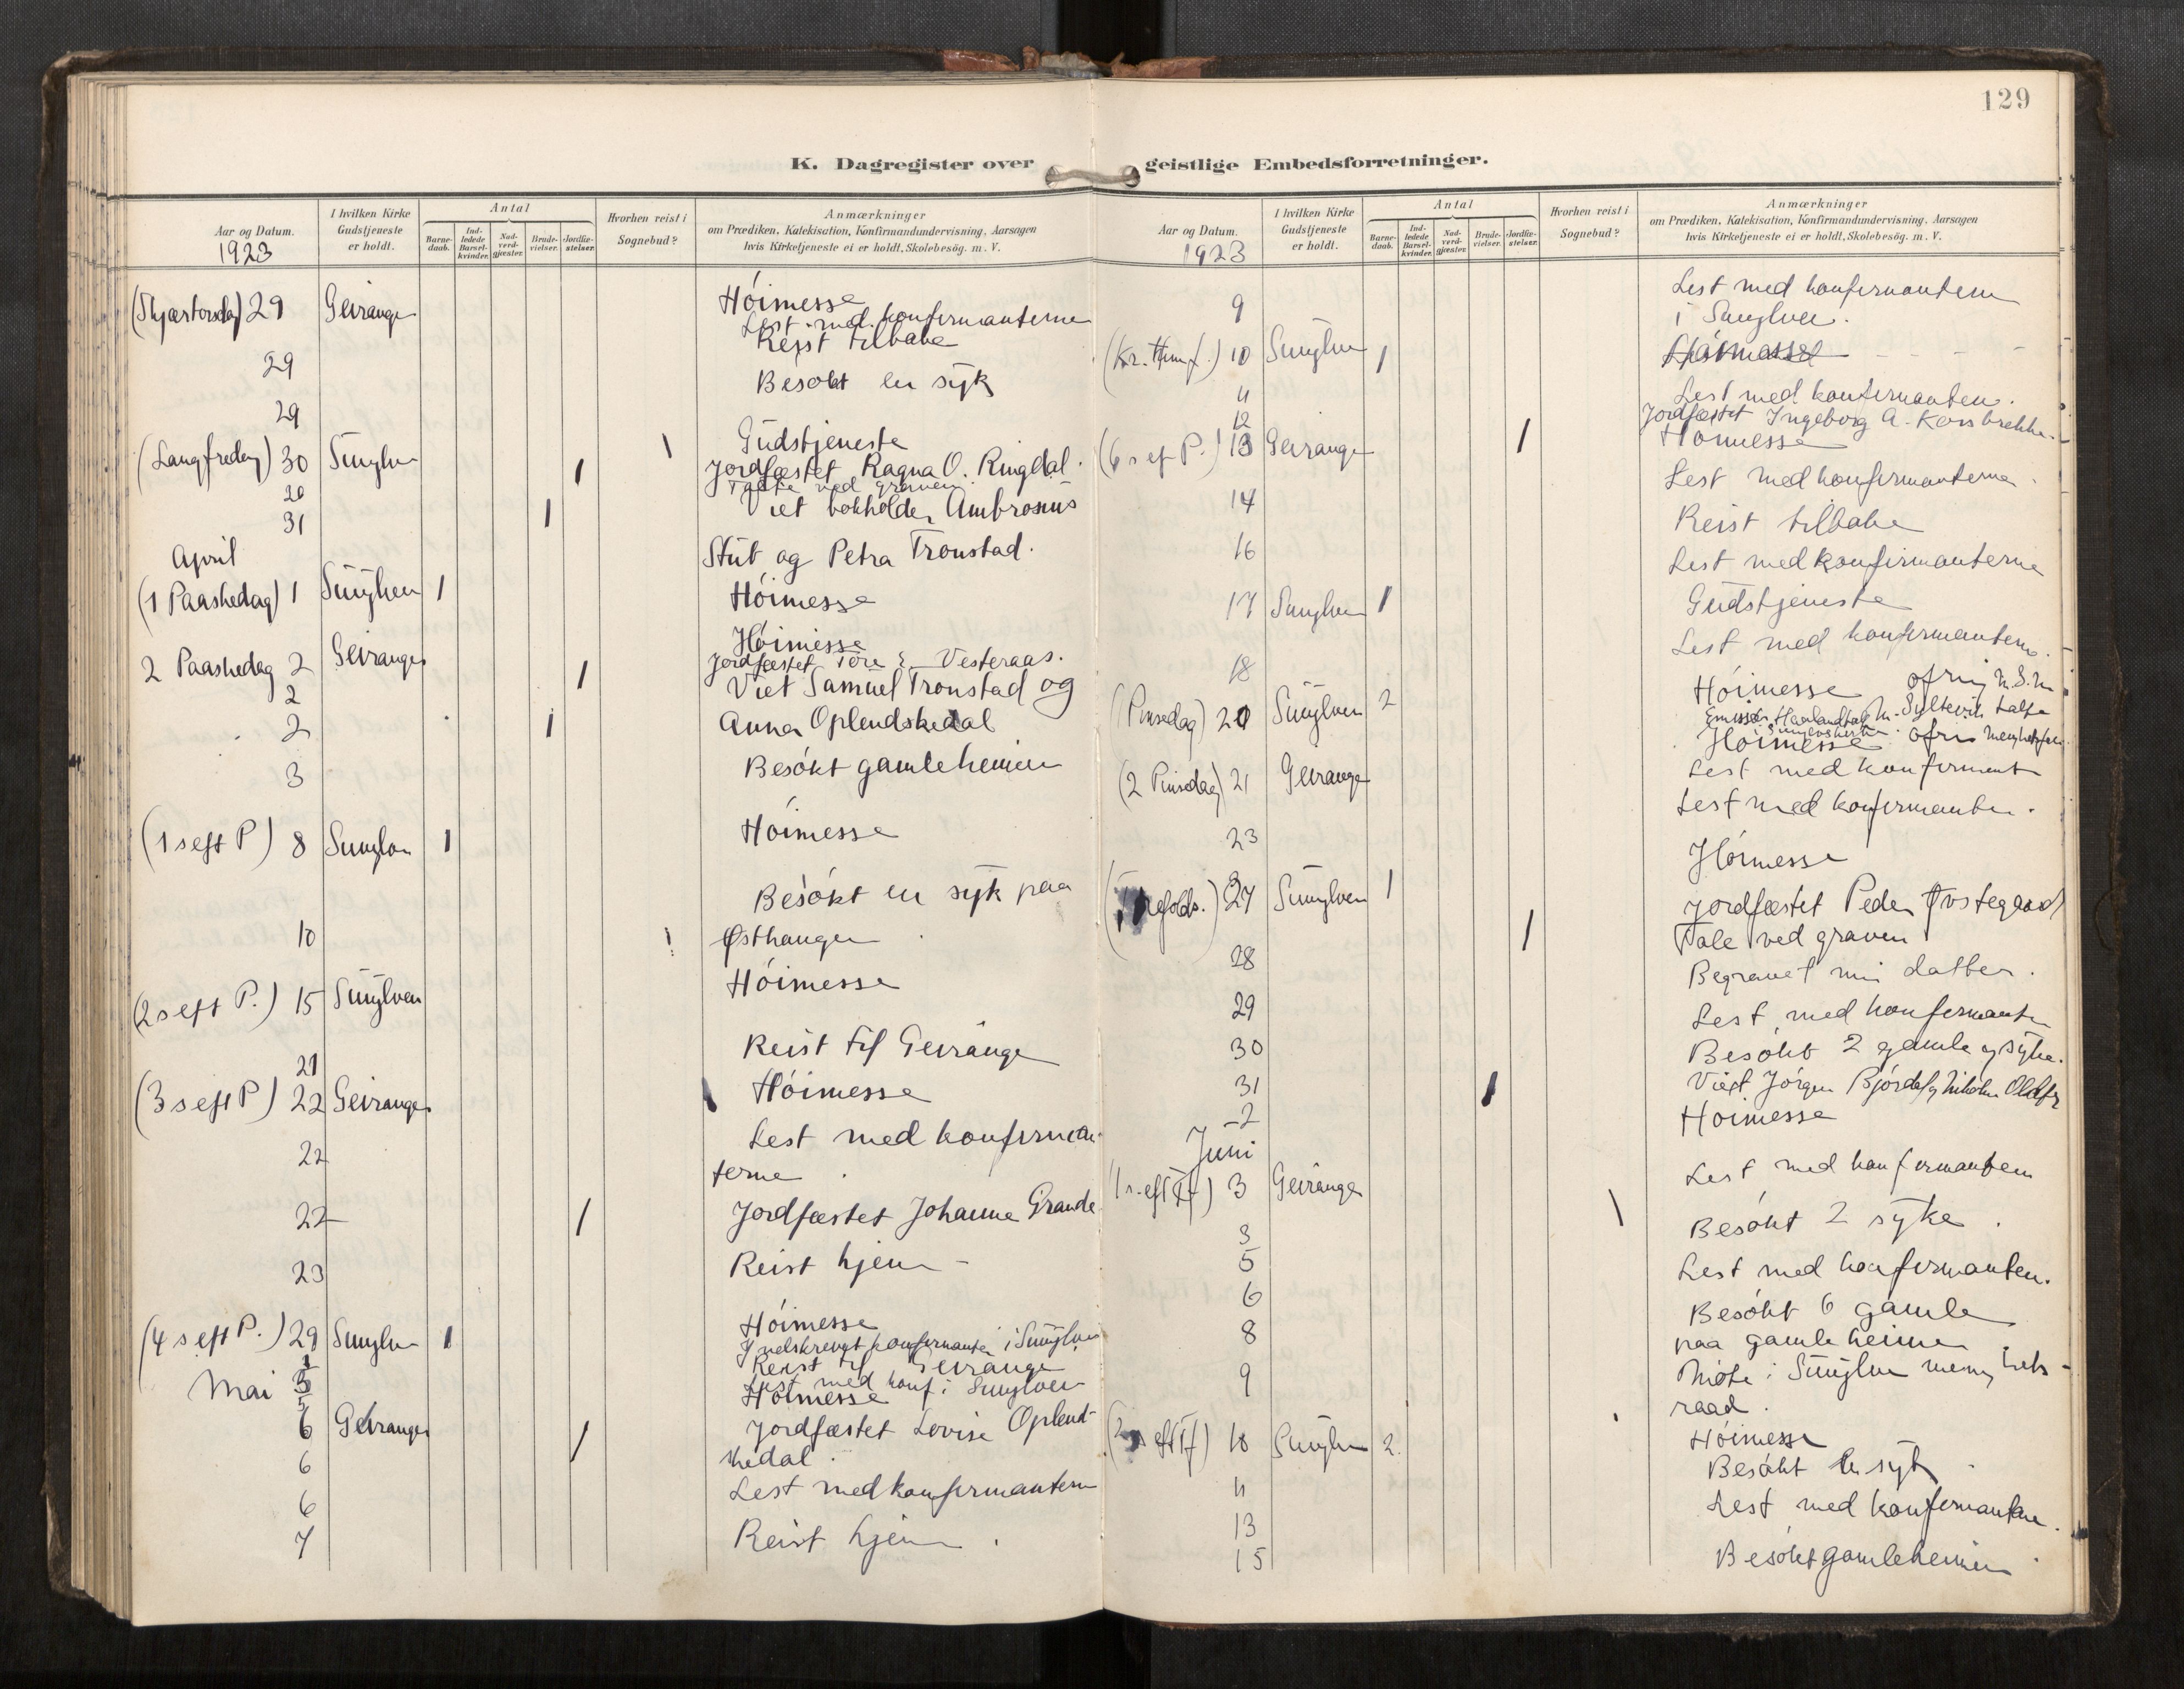 129
K. Dagregister over geistlige Embedsforretninger.
Aar og Datum.
1923
I hvilken Kirke Gudstjeneste er holdt.
Antal
Barne-daab.
Ind-ledede Barsel-kvinder.
Nad-verd-gjæster.
Brude-vielser.
Jordfæ-stelser.
Hvorhen reist i Sognebud?
Anmærkninger
om Prædiken, Katekisation, Konfirmandundervisning, Aarsagen
hvis Kirketjeneste ei er holdt, Skolebesøg. m. V.
(Skjærtorsdag) 29 Geiranger Höimesse
Lest med konfirmanterne
29 Reist tilbake
29 Besökt en syk
(Langfredag) 30 Sunylven Gudstjeneste
30 1 Jordfæstet Ragna O. Ringdal.
Talte ved graven.
31 1 Viet bokholder Ambrosius
Stut og Petra Tronstad.
April
(1 Paaskedag) 1 Sunylven 1 Höimesse
2 Paaskedag 2 Geiranger Höimesse
2 1 Jordfæstet Tore Vesteraas.
2 1 Viet Samuel Tronstad og
Anna Oplendskedal
3 Besökt gamleheimen
(1 s eft P) 8 Sunylven 1 Höimesse
10 Besökt en syk paa
Østhaugen
(2 s eft P.) 15 Sunylven Höimesse
21 Reist til Geiranger
(3 s eft P) 22 Geiranger Höimesse
22 Lest med konfirman-
terne
22 1 Jordfæstet Johanne Grande
23 Reist hjem
(4 s eft P.) 29 Sunylven 1 Höimesse
Indskrevet konfirmanter i Sunylven
Mai Reist til Geiranger
5 Lest med konf. i Sunylven
6 Geiranger Höimesse
6 1 Jordfæstet Lovise Oplend-
skedal
6 Lest med konfirmantern
7 Reist hjem.
Aar og Datum.
1923
I hvilken Kirke Gudstjeneste er holdt.
Antal
Barne-daab.
Ind-ledede Barsel-kvinder.
Nad-verd-gjæster.
Brude-vielser.
Jordfæ-stelser.
Hvorhen reist i Sognebud?
Anmærkninger
om Prædiken, Katekisation, Konfirmandundervisning, Aarsagen
hvis Kirketjeneste ei er holdt, Skolebesøg. m. V.
9 Lest med konfirmantern
i Sunylven.
(Kr. Himf.) 10 Sunylven 1 Höimesse
11 Lest med konfirmanten.
12 1 Jordfæstet Ingeborg A. Korsbrekke.
(6 s ef P.) 13 Geiranger Höimesse
14 Lest med konfirmanterne
16 Reist tilbake
Lest med konfirmanterne
17 Sunylven 1 Gudstjeneste
18 Lest med konfirmantern.
(Pinsedag) 20 Sunylven 2 Höimesse ofring
Syltevik talte
(2 Pinsedag) 21 Geiranger Höimesse
Lest med konfirmant
23 Lest med konfirmanten.
27 Sunylven 1 Höimesse
28 1 Jordfæstet Peder
Tale ved graven
29 Begravet min datter.
30 Lest med konfirmanten
31 Besökt 2 gamle og syke.
2 1 Viet Jörgen
Juni
(1 s. eft Tf) 3 Geiranger Höimesse
3 Lest med konfirmantern
5 Besökt 2 syke.
6 Lest med konfirmanten.
8 Besökt 6 gamle
paa gamleheimen
9 Möte i Sunylven menighets-
raad.
(2 s eft Tf) 10 Sunylven 2. Höimesse
11 Besökt en syk
13 Lest med konfirmantene.
15 Besökt gamleheimen